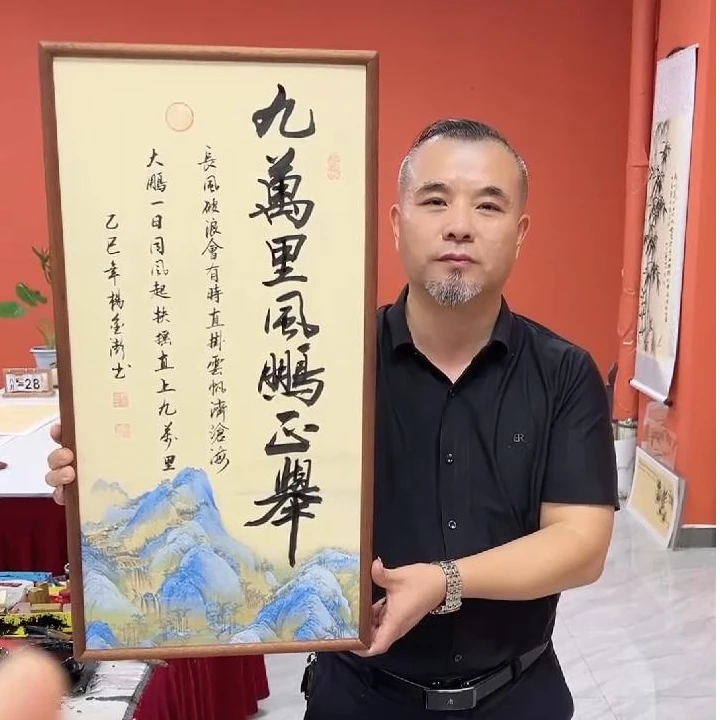 九萬里風鵬正舉
長風破浪會有時直掛雲帆濟滄海
大鵬一日同風起扶搖直上九萬里
乙巳年楊金澍书
28